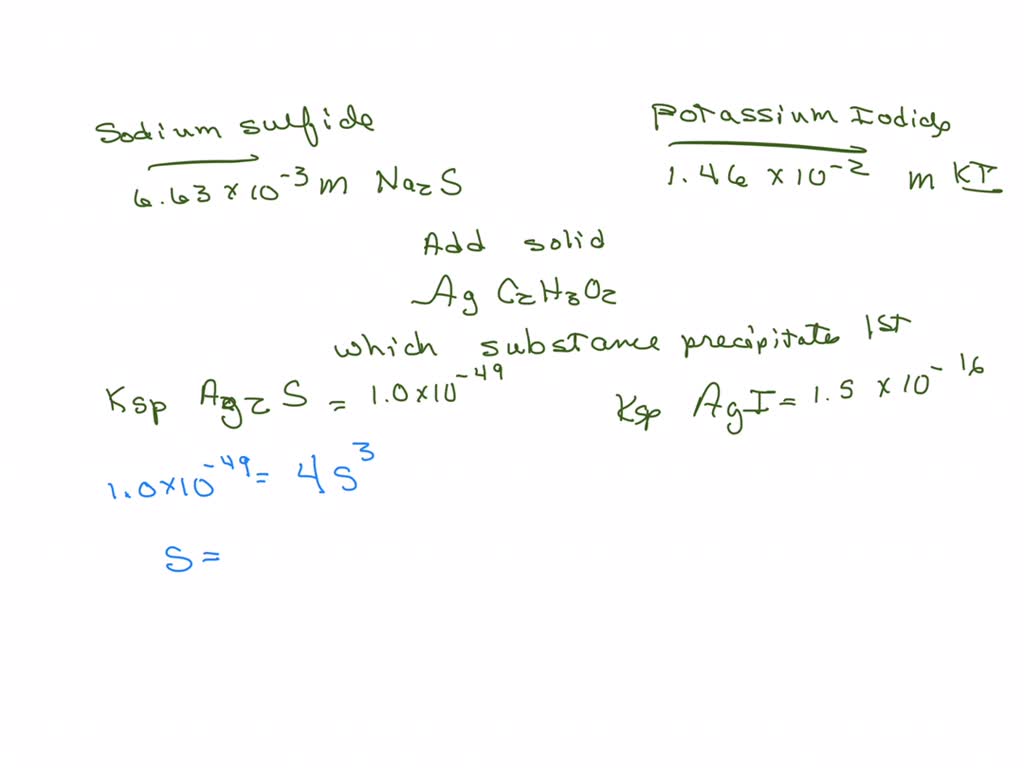 Sodium sulfide
6.63 x 10⁻³ m Na₂S
Potassium Iodide
1.46 x 10⁻² m KI
Add solid
Ag C₂H₃O₂
which substance precipitate 1st
Ksp Ag₂S = 1.0x10⁻⁴⁹
Ksp AgI = 1.5 x 10⁻¹⁶
1.0x10⁻⁴⁹ = 4s³
S =